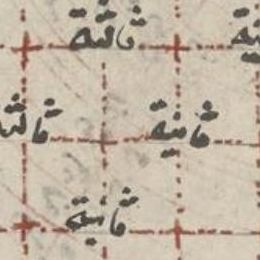 ثالثة
ثانية ثالثة
ثانية